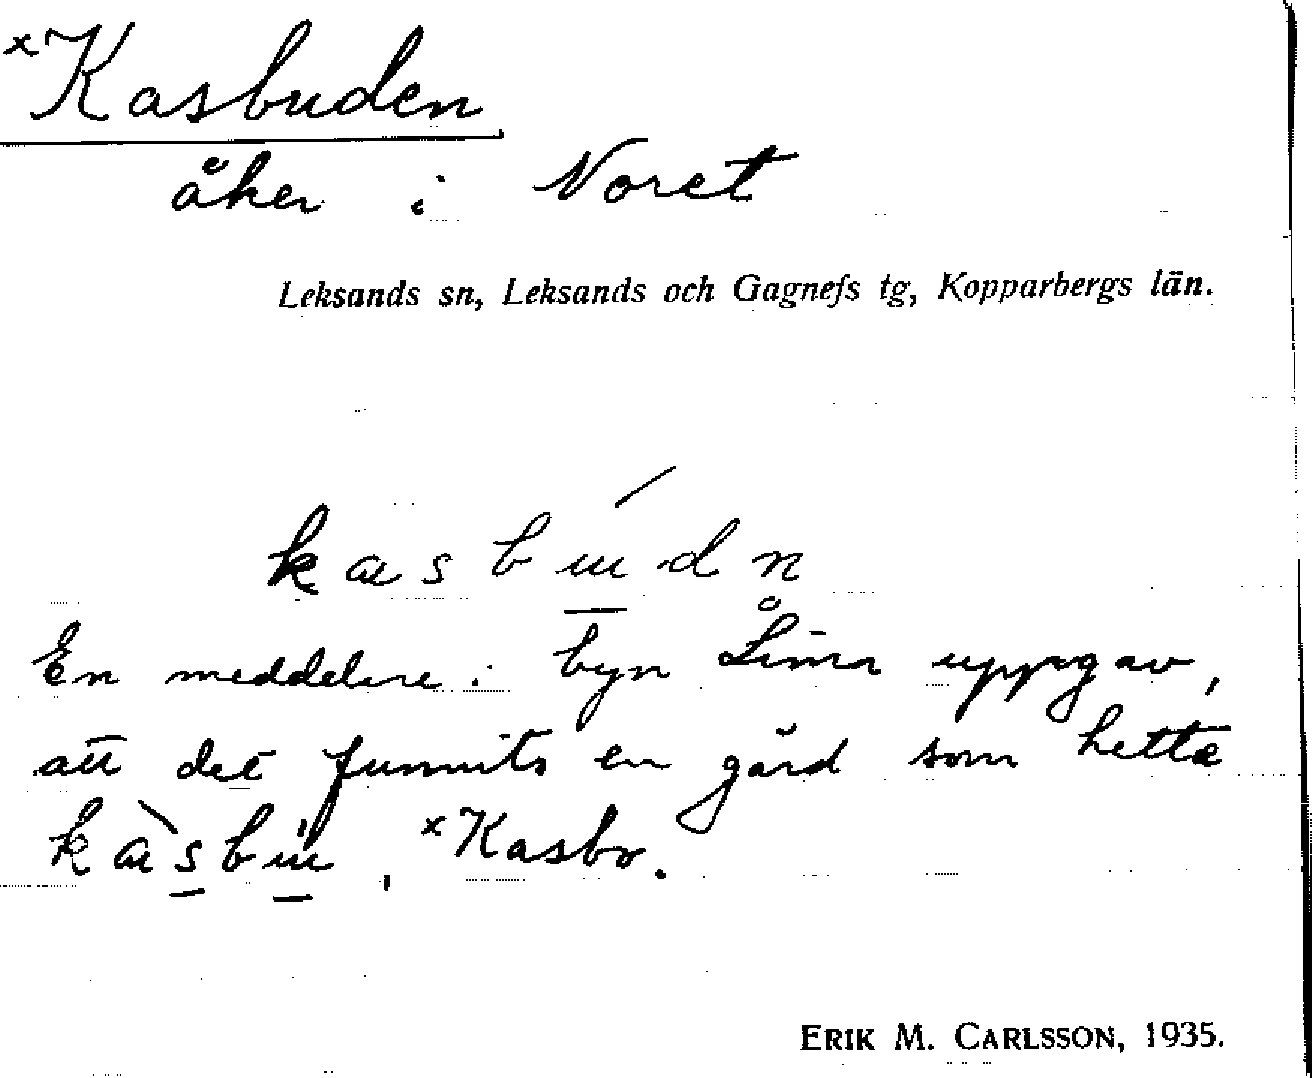 ˣKasbuden
åker i Noret
Leksands sn, Leksands och Gagnefs tg, Kopparbergs län.
kasbúdn
En meddelare i byn Lima uppgav,
att det funnits en gård som hette
kàsbu̇, ˣKasbo.
ERIK M. CARLSSON, 1935.